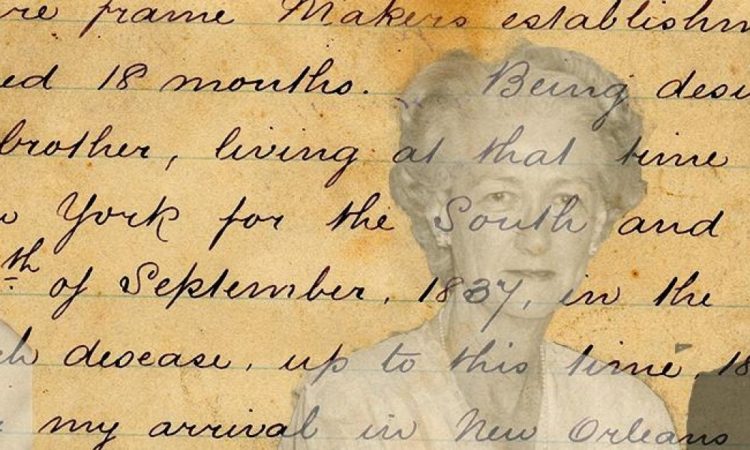 re frame Makers establishm
ed 18 months. Being desi
brother, living at that time
York for the South and
th of September, 1837, in the
ch disease, up to this time, 18
my arrival in New Orleans